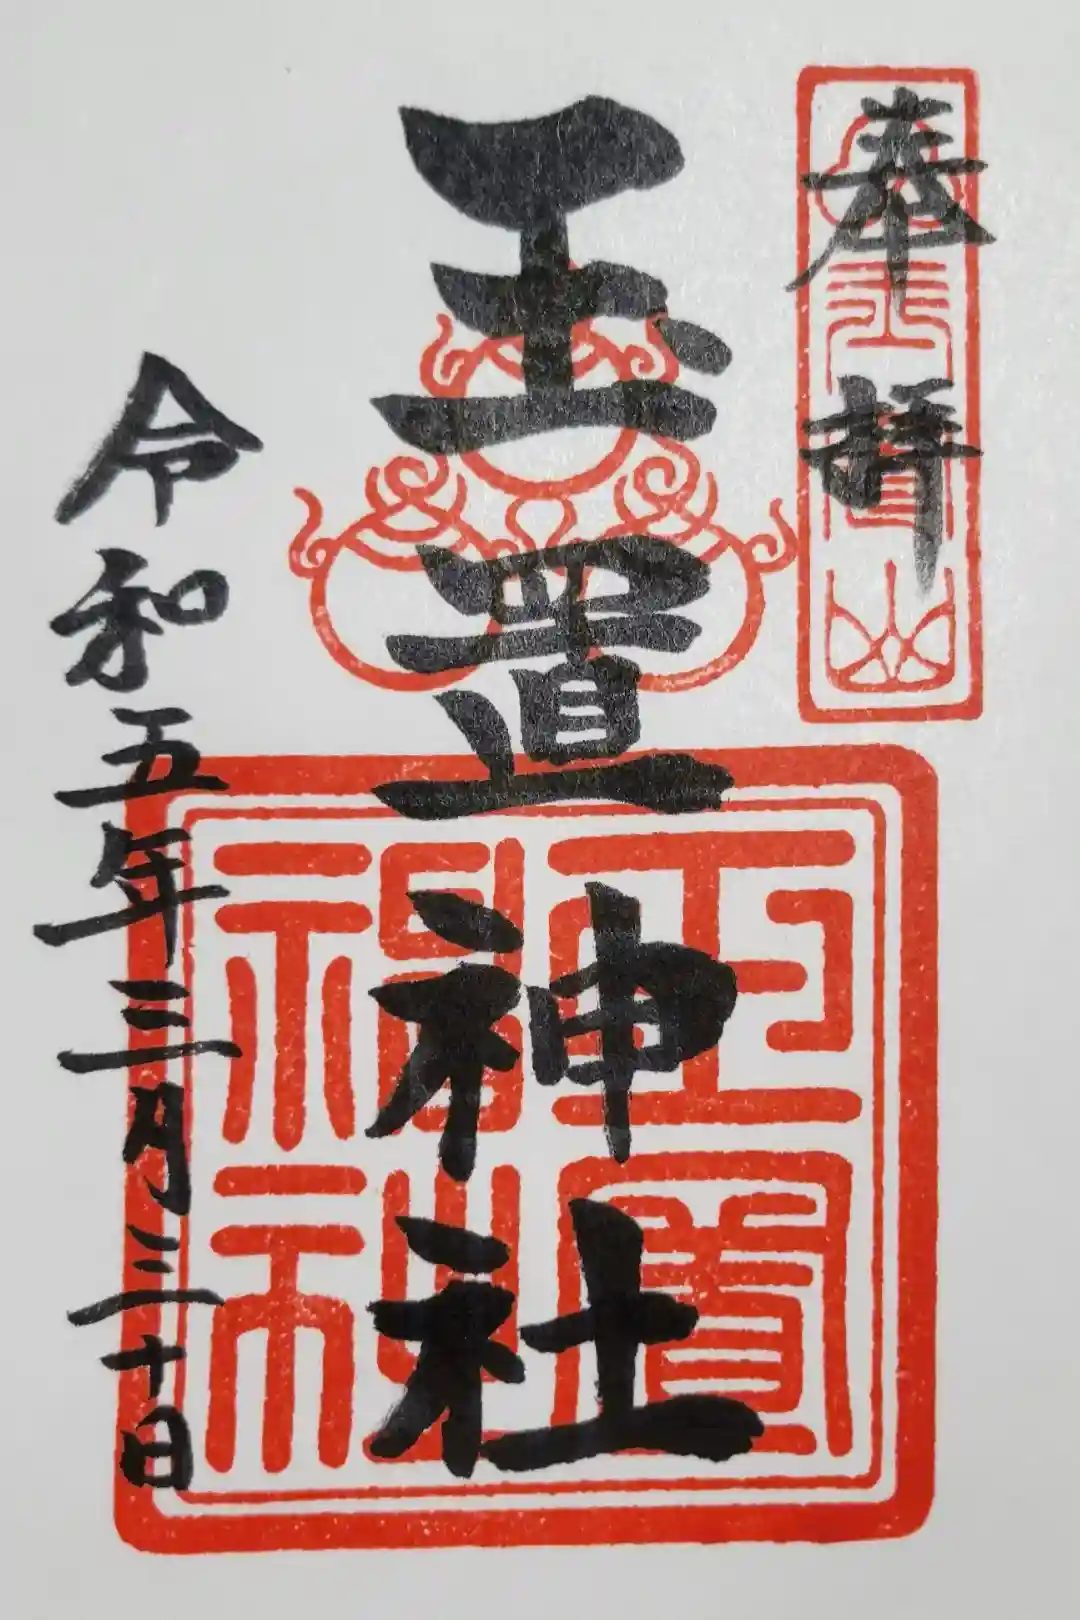 奉拝
玉置山
玉置神社
玉置神社
令和五年三月三十日